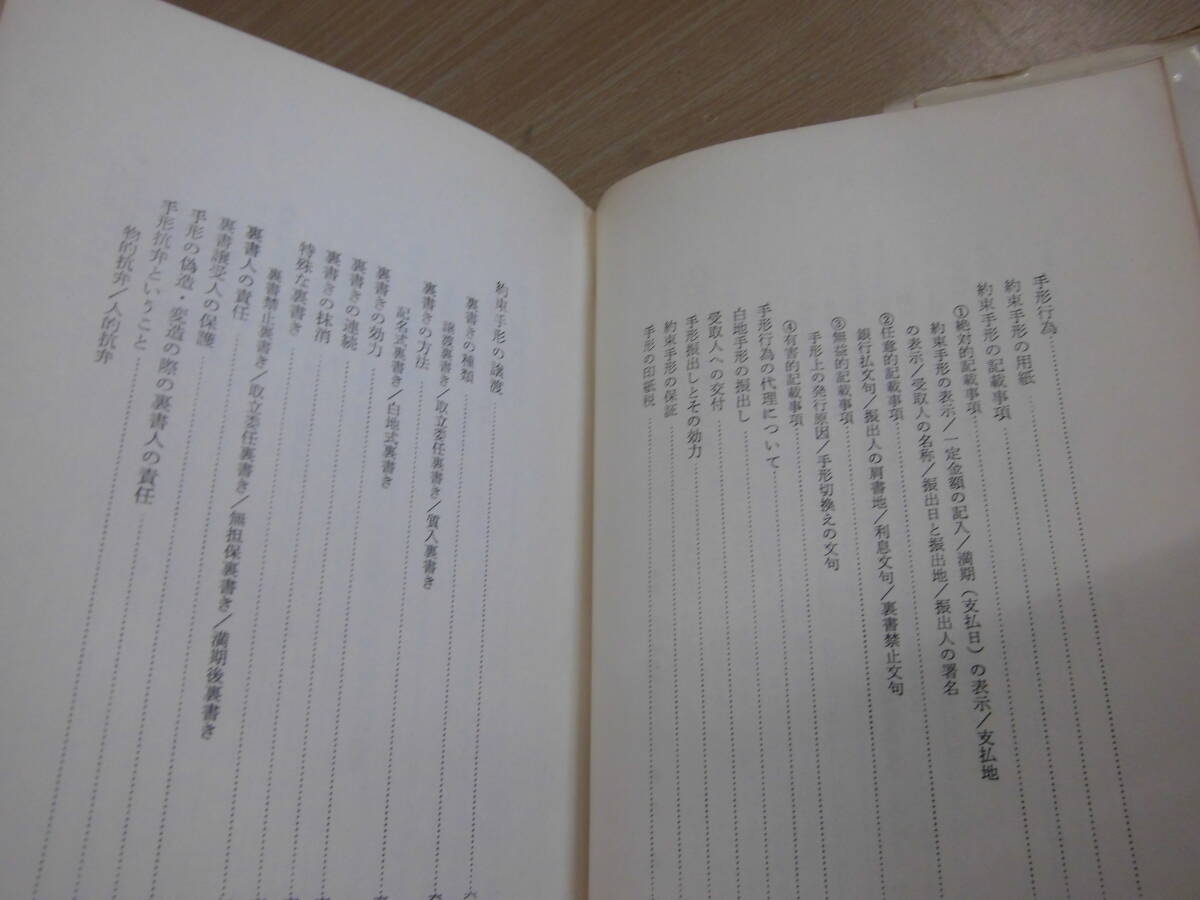 手形行為
約束手形の用紙
約束手形の記載事項
①絶対的記載事項
約束手形の表示/一定金額の記入/満期(支払日)の表示/支払地
の表示/受取人の名称/振出日と振出地/振出人の署名
②任意的記載事項
銀行払文句/振出人の肩書地/利息文句/裏書禁止文句
③無益的記載事項
手形上の発行原因/手形切換えの文句
④有害的記載事項
手形行為の代理について
白地手形の振出し
受取人への交付
手形振出しとその効力
約束手形の保証
手形の印紙税
約束手形の譲渡
裏書きの種類
譲渡裏書き/取立委任裏書き/質入裏書き
裏書きの方法
記名式裏書き/白地式裏書き
裏書きの効力
裏書きの連続
裏書きの抹消
特殊な裏書き
裏書禁止裏書き/取立委任裏書き/無担保裏書き/満期後裏書き
裏書人の責任
裏書譲受人の保護
手形の偽造・変造の際の裏書人の責任
手形抗弁ということ
物的抗弁/人的抗弁